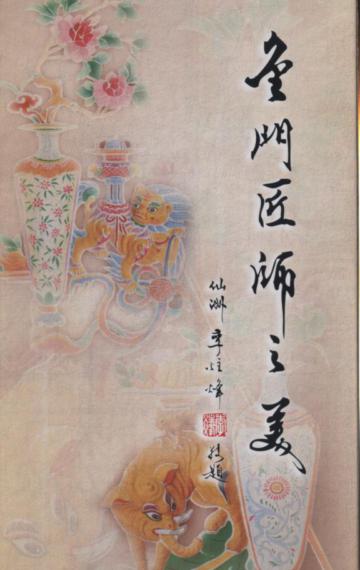 金門匠師之美
仙洲 李炷烽 敬題